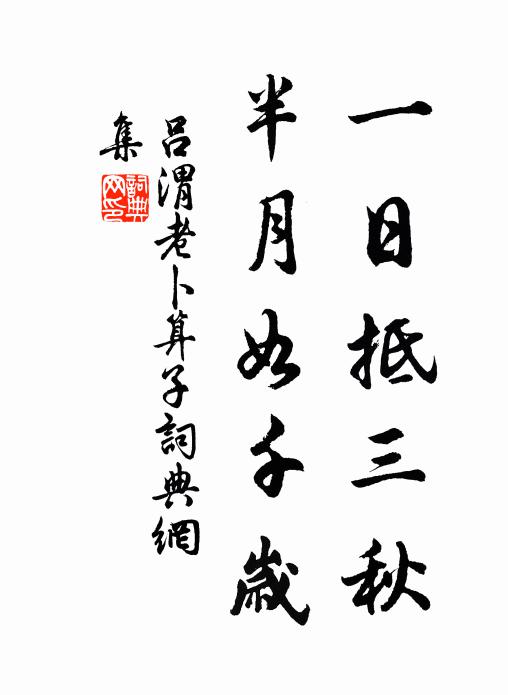 一日抵三秋
半月如千歲
呂渭老卜算子詞典網
集
詞典
网印